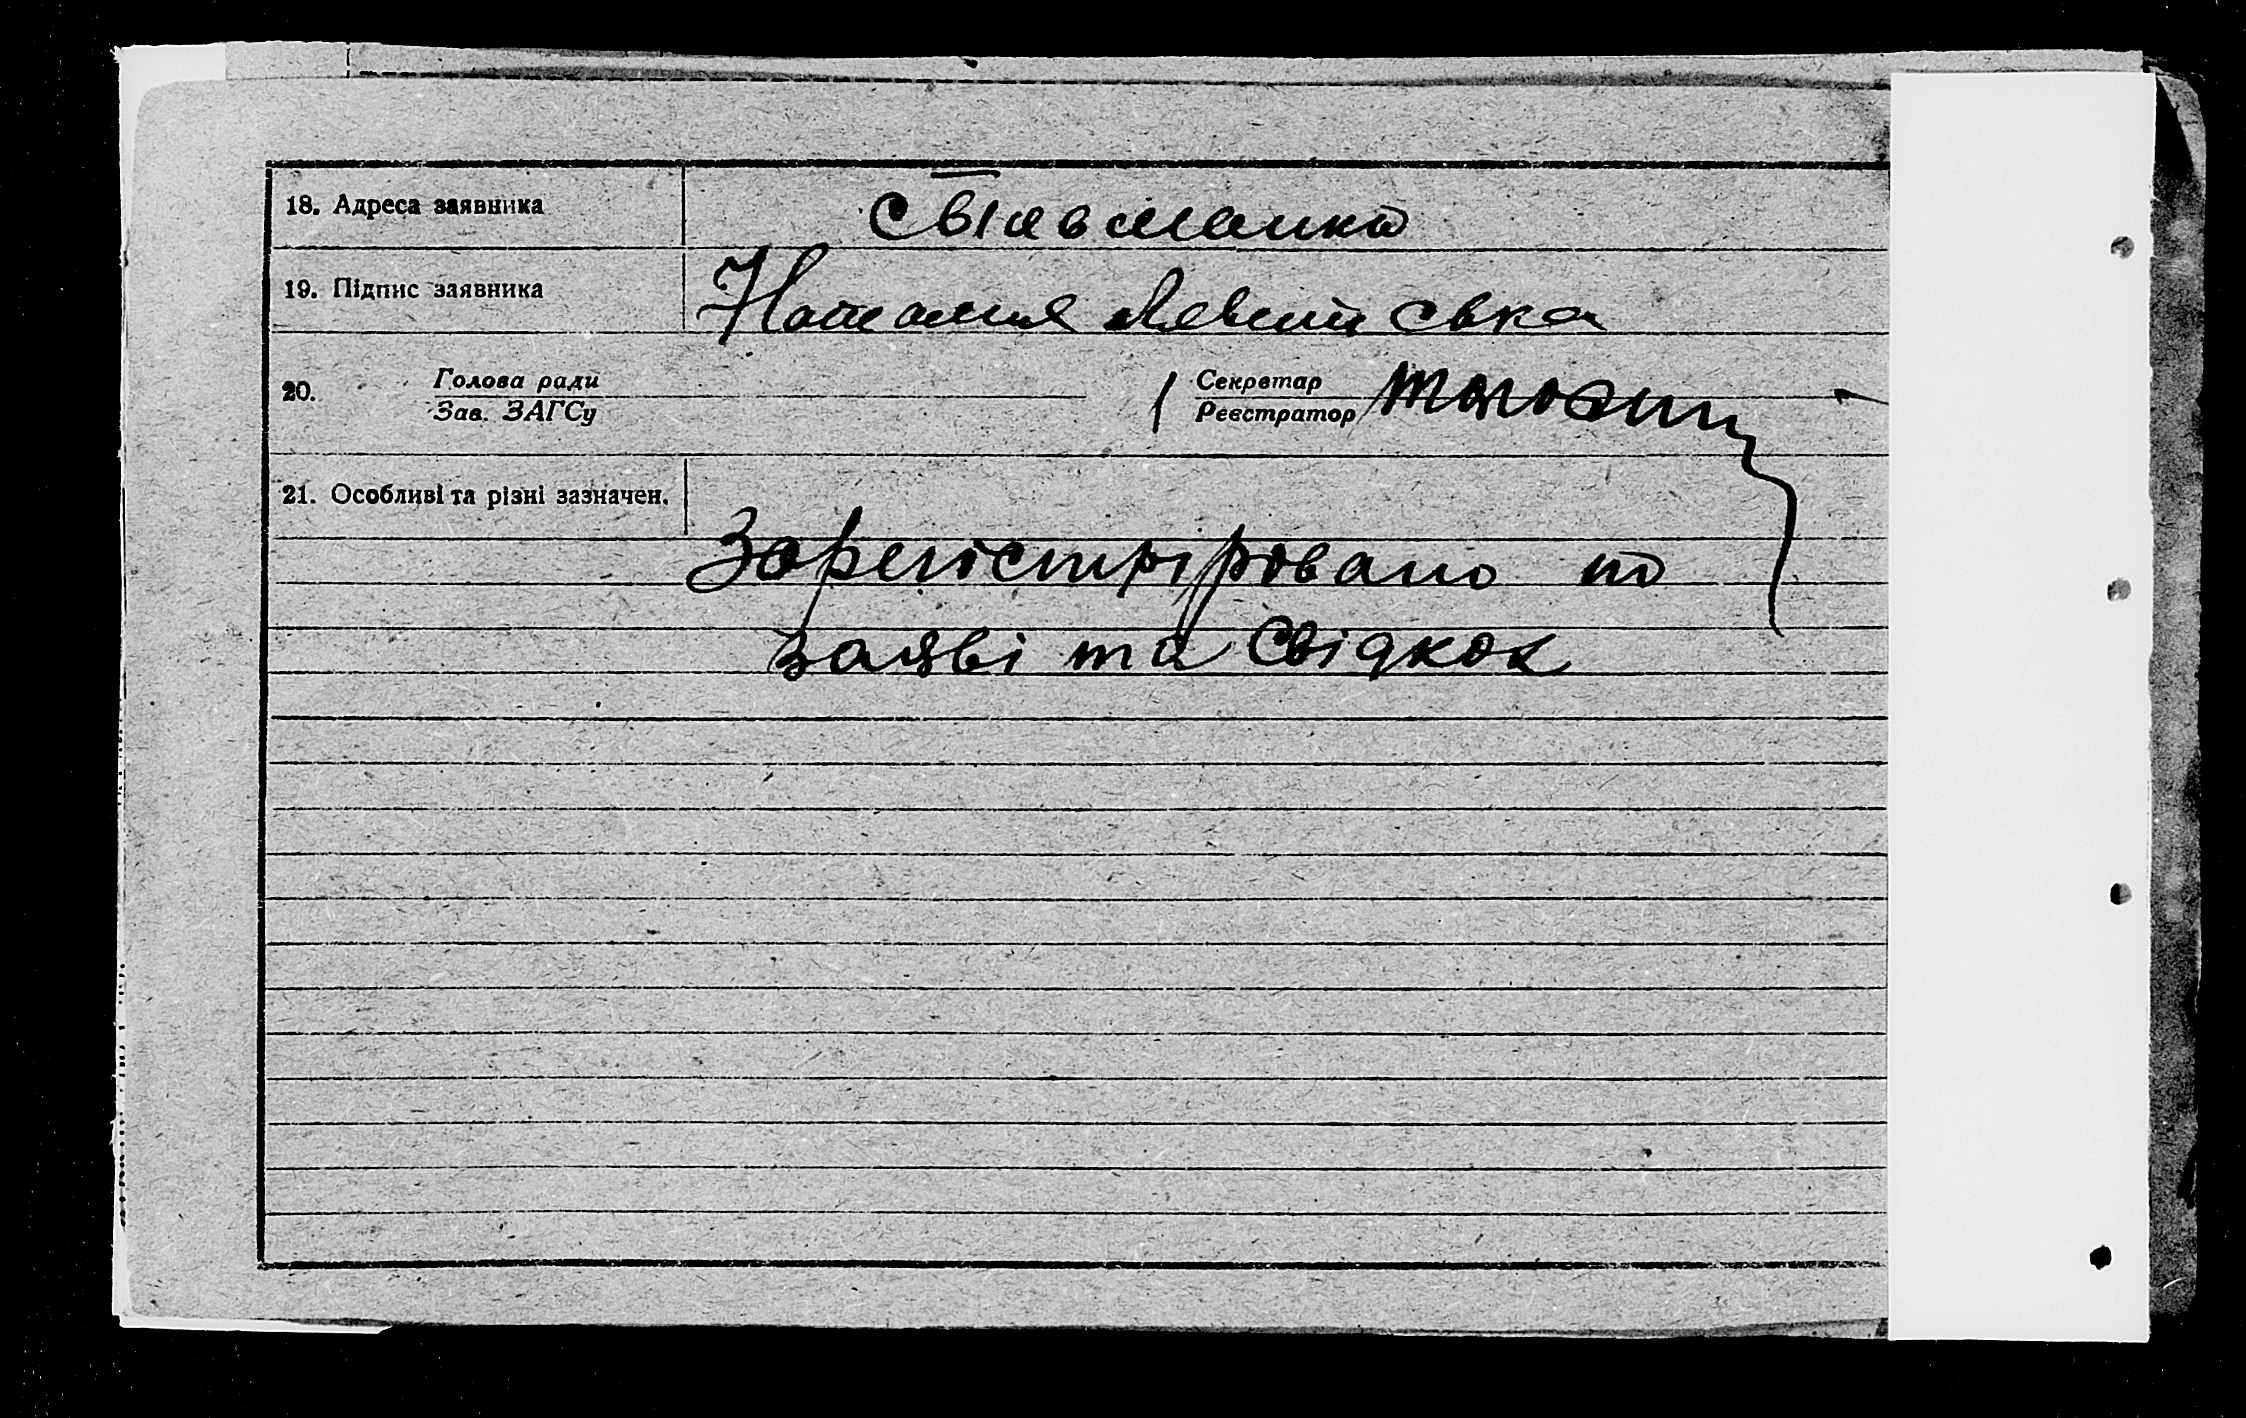 18. Адреса заявника
19. Підпис заявника Наталия Левитська
20. Голова ради Секретар
Зав. ЗАГСу Реєстратор
21. Особливі та різні зазначен.
Зарегістріровано по
заяві та свідкох